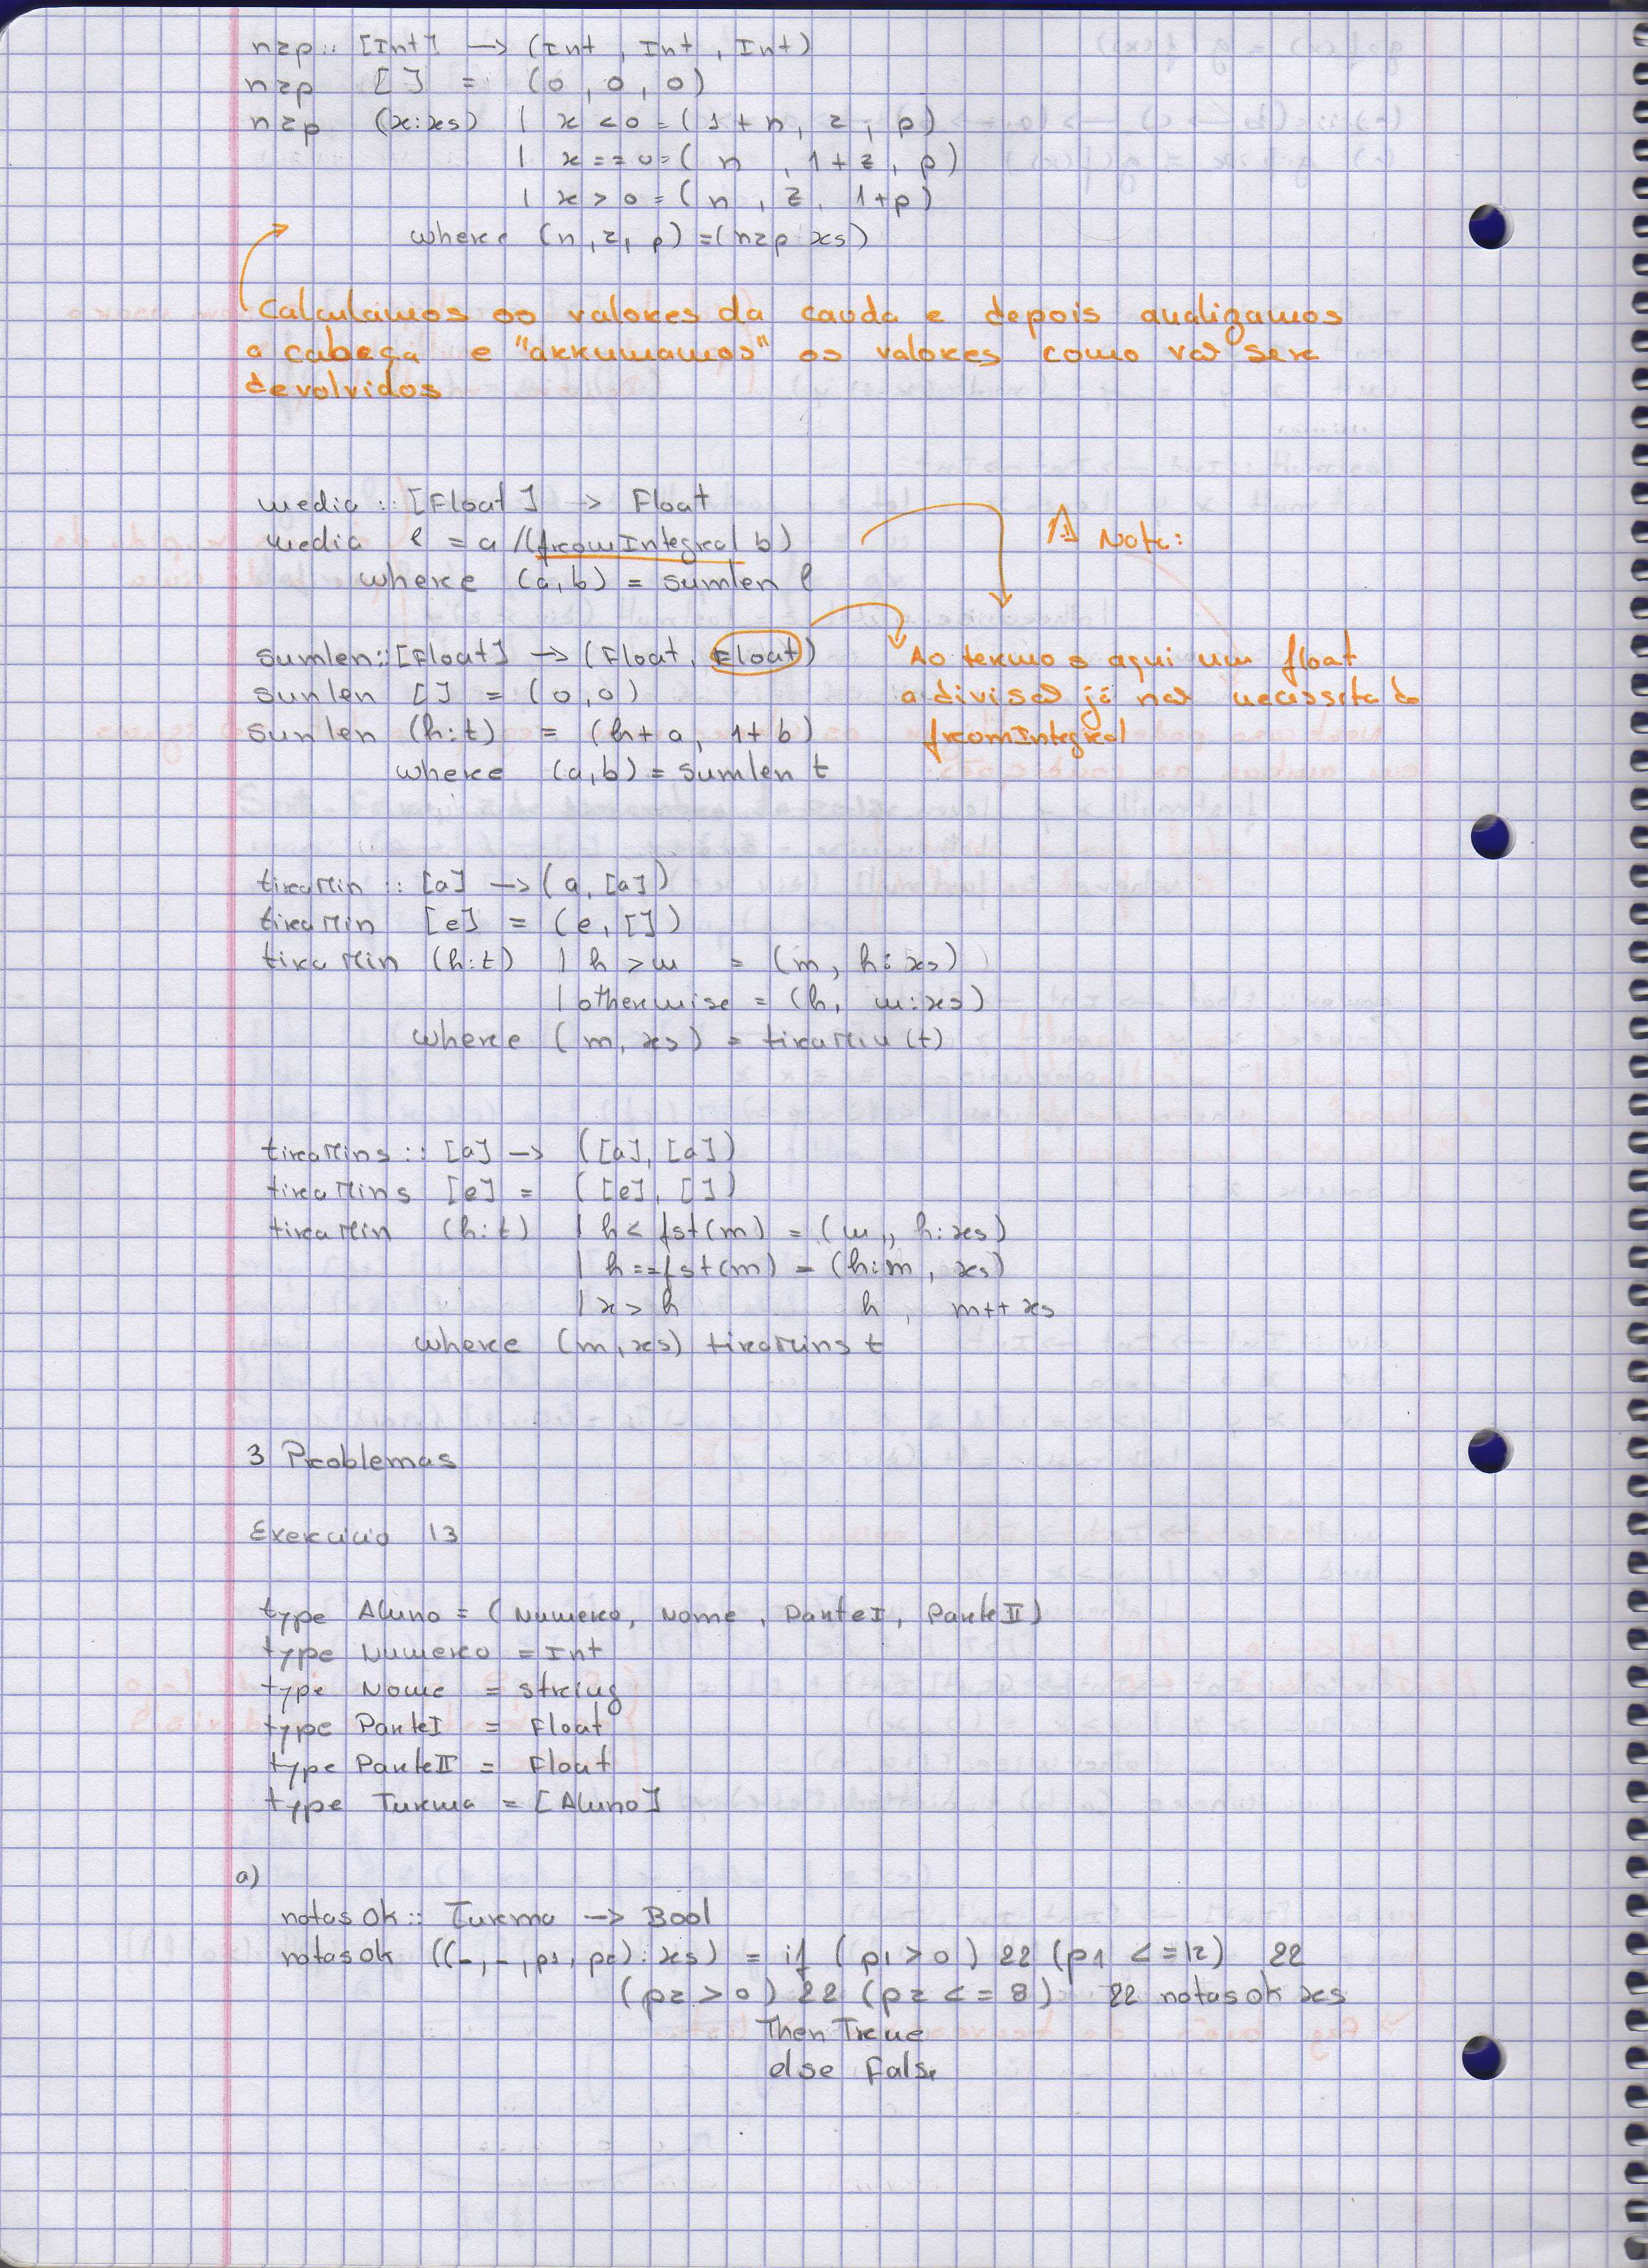 nzp :: [Int] -> (Int, Int, Int)
nzp [] = (0, 0, 0)
nzp (x:xs) | x < 0 = (1+n, z, p)
| x == 0 = (n, 1+z, p)
| x > 0 = (n, z, 1+p)
where (n, z, p) = (nzp xs)
Calculamos os valores da cauda e depois analizamos
a cabeça e "arrumamos" os valores como vão ser
devolvidos
media :: [Float] -> Float
media l = a /(fromIntegral b)
where (a,b) = sumlen l
⚠ Note:
sumlen :: [Float] -> (Float, Float)
sumlen [] = (0,0)
sumlen (h:t) = (h+a, 1+b)
where (a,b) = sumlen t
Ao termos aqui um float
a divisão já não necessita do
fromIntegral
tiraMin :: [a] -> (a, [a])
tiraMin [e] = (e, [])
tiraMin (h:t) | h > m = (m, h:xs)
| otherwise = (h, m:xs)
where (m, xs) = tiraMin (t)
tiraMins :: [a] -> ([a], [a])
tiraMins [e] = ([e], [])
tiraMin (h:t) | h < fst(m) = (m, h:xs)
| h == fst(m) = (h:m, xs)
| x > h h, m++xs
where (m,xs) tiraMins t
3 Problemas
Exercicio 13
type Aluno = (Numero, Nome, ParteI, ParteII)
type Numero = Int
type Nome = string
type ParteI = Float
type ParteII = Float
type Turma = [Aluno]
a)
notasOk :: Turma -> Bool
notasOk ((_,_,p1,p2):xs) = if (p1>0) && (p1 <=12) &&
(p2>0) && (p2 <= 8) && notasOk xs
Then True
else False